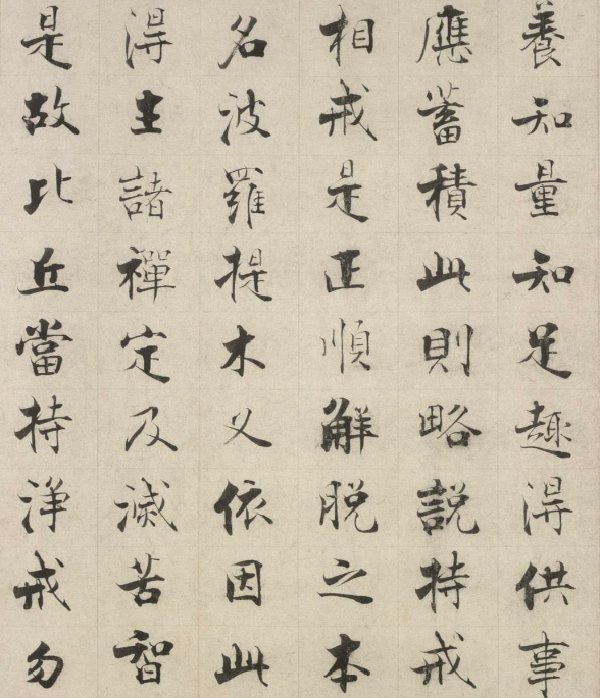 養知量知足趣得供事
應蓄積此則略說持戒
相戒是正順解脫之本
名波羅提木义依因此
得主諸禪定及滅苦智
是故比丘當持淨戒勿